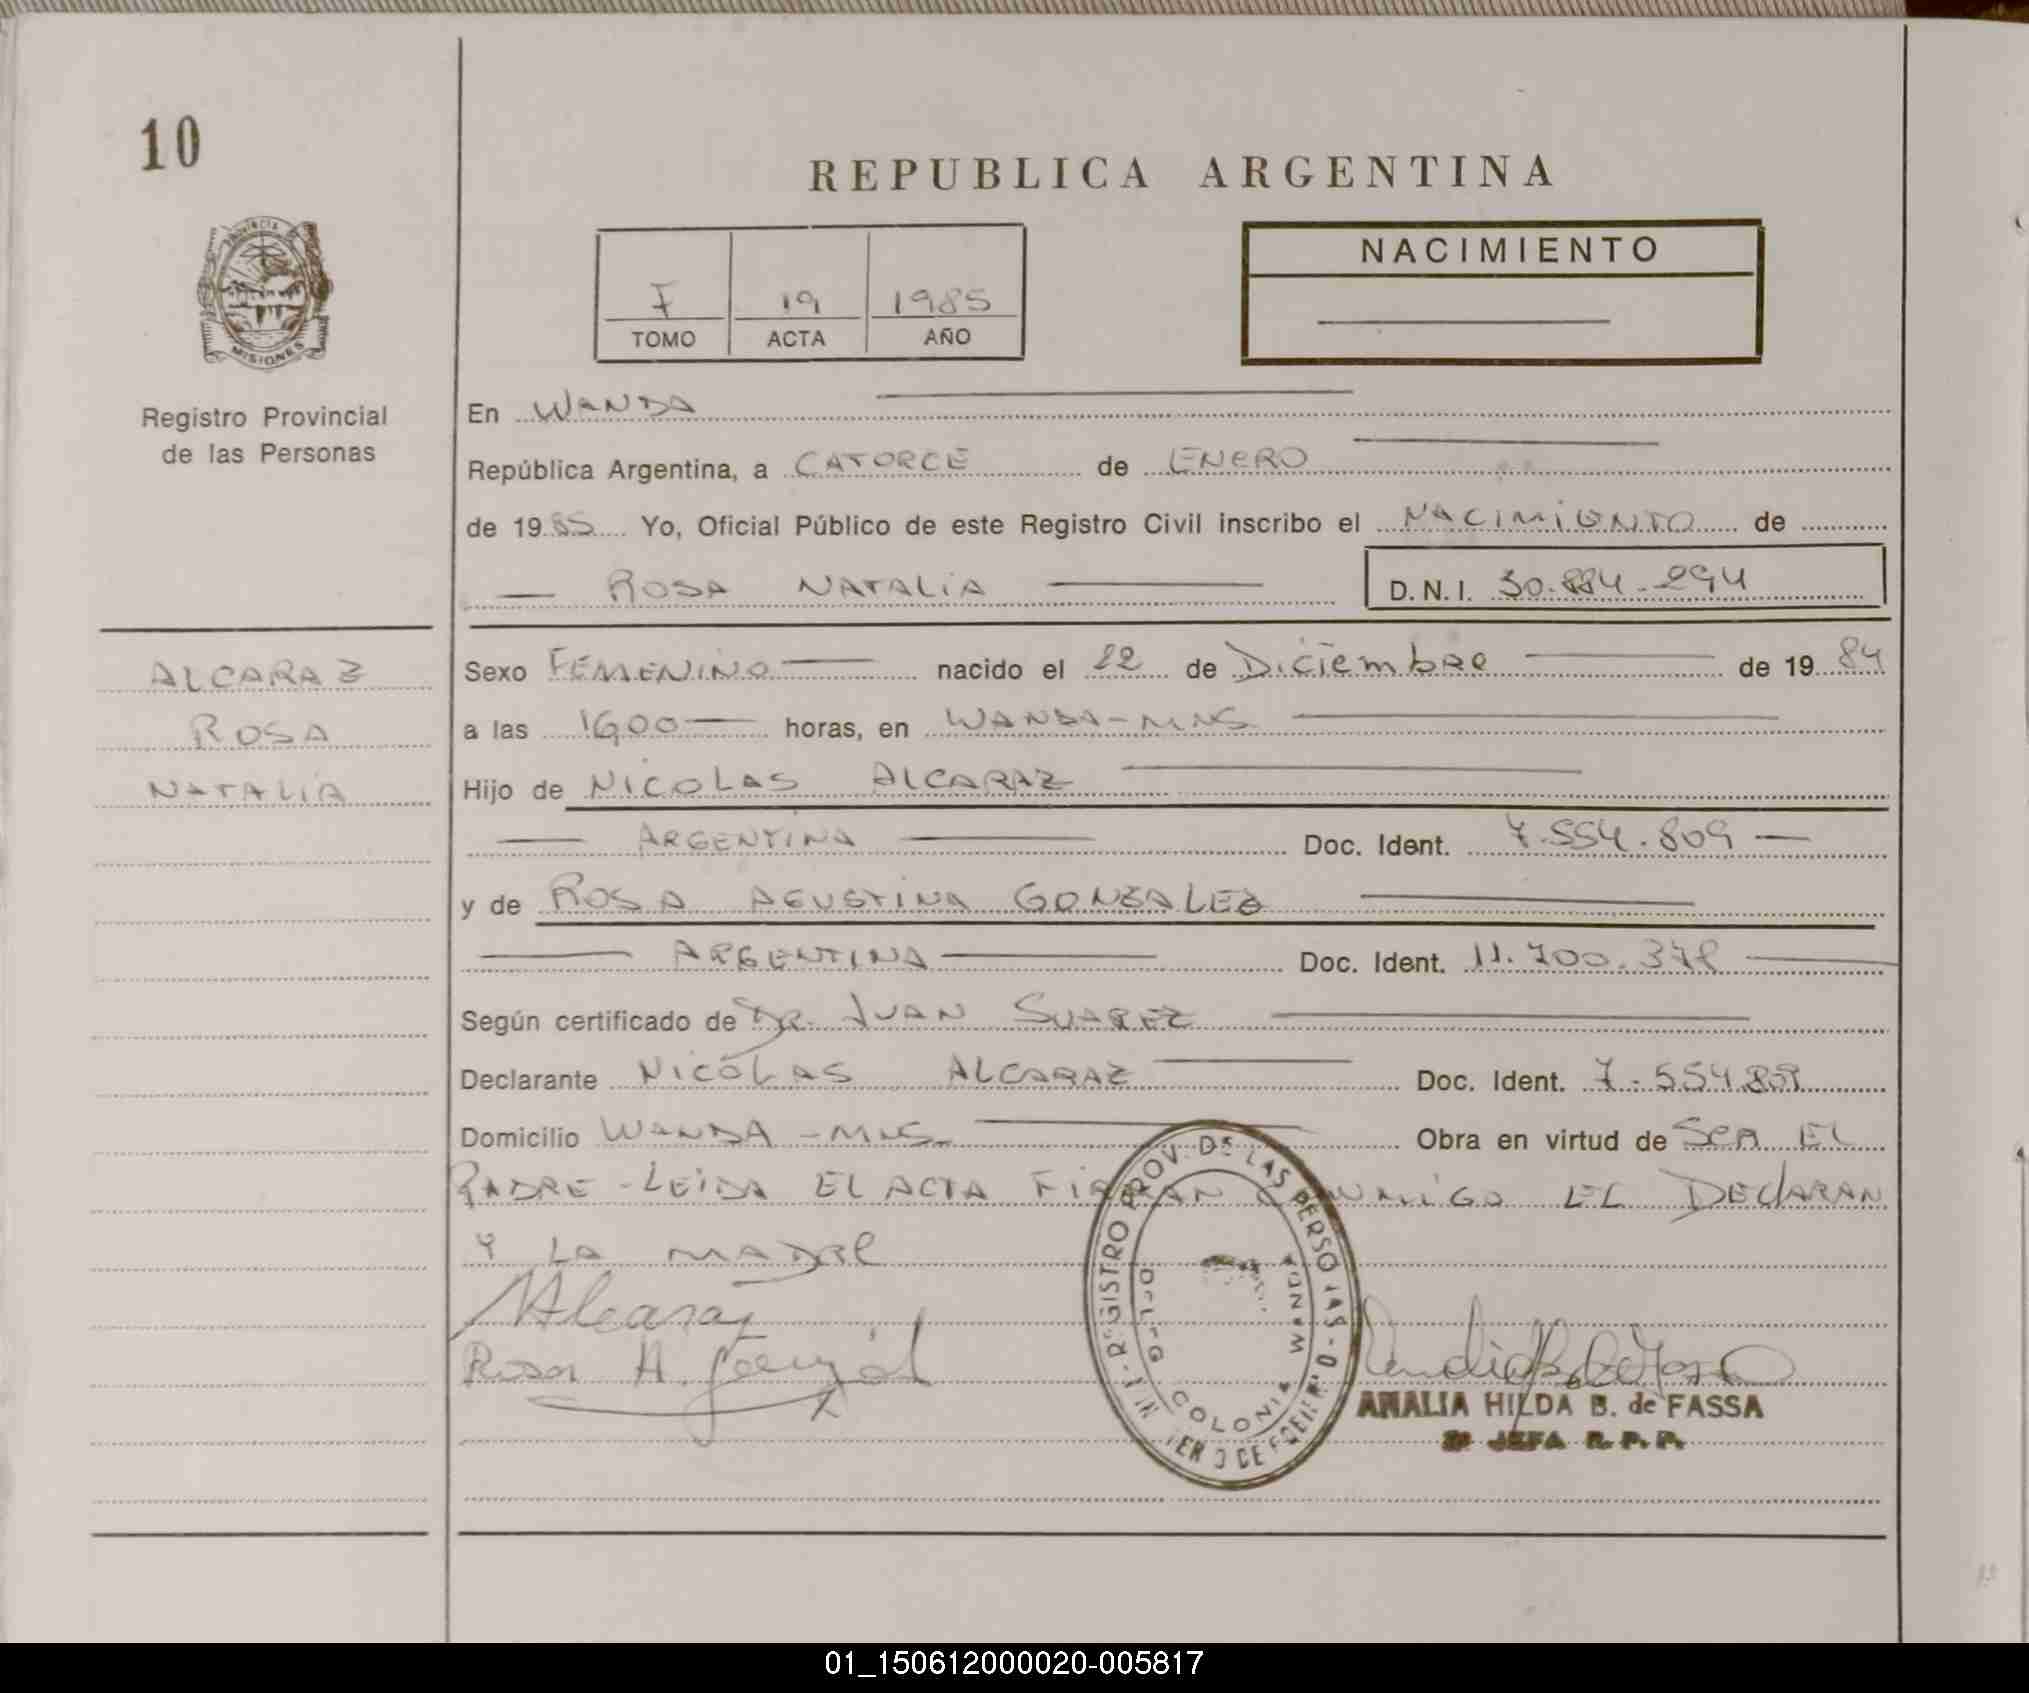 10
REPUBLICA ARGENTINA
PROVINCIA DE
MISIONES
Registro Provincial
de las Personas
I 19 1985
TOMO ACTA AÑO
NACIMIENTO
En WANDA
República Argentina, a CATORCE de ENERO
de 1985 Yo, Oficial Público de este Registro Civil inscribo el NACIMIENTO de
ROSA NATALIA D.N.I. 30.884.294
ALCARAZ
ROSA
NATALIA
Sexo FEMENINO nacido el 22 de Diciembre de 1984
a las 1600 horas, en WANDA-MNS
Hijo de NICOLAS ALCARAZ
ARGENTINA Doc. Ident. 7.554.809
y de ROSA AGUSTINA GONZALEZ
ARGENTINA Doc. Ident. 11.700.378
Según certificado de DR. JUAN SUAREZ
Declarante NICOLAS ALCARAZ Doc. Ident. 7.554.809
Domicilio WANDA - MNS. Obra en virtud de SER EL
PADRE - LEIDA EL ACTA FIRMAN CONMIGO EL DECLARAN
Y LA MADRE
NAlcaraz
Rosa A. González
REGISTRO PROV. DE LAS PERSONAS
COLONIA WANDA
ANALIA HILDA B. de FASSA
JEFA R. P. P.
01_150612000020-005817